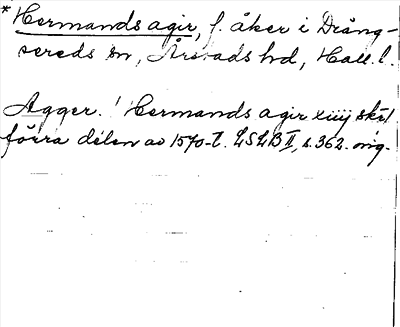 * Hermands agir, f. åker i Dräng-
sereds sn, Årstads hd, Hall. l.
Agger. ! Hermands agir xiiij skr!
förra delen av 1570-t. LSLB II, s. 362. orig.